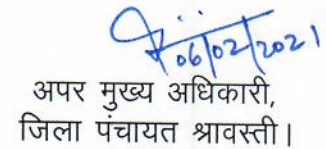 06/02/2021
अपर मुख्य अधिकारी,
जिला पंचायत श्रावस्ती।